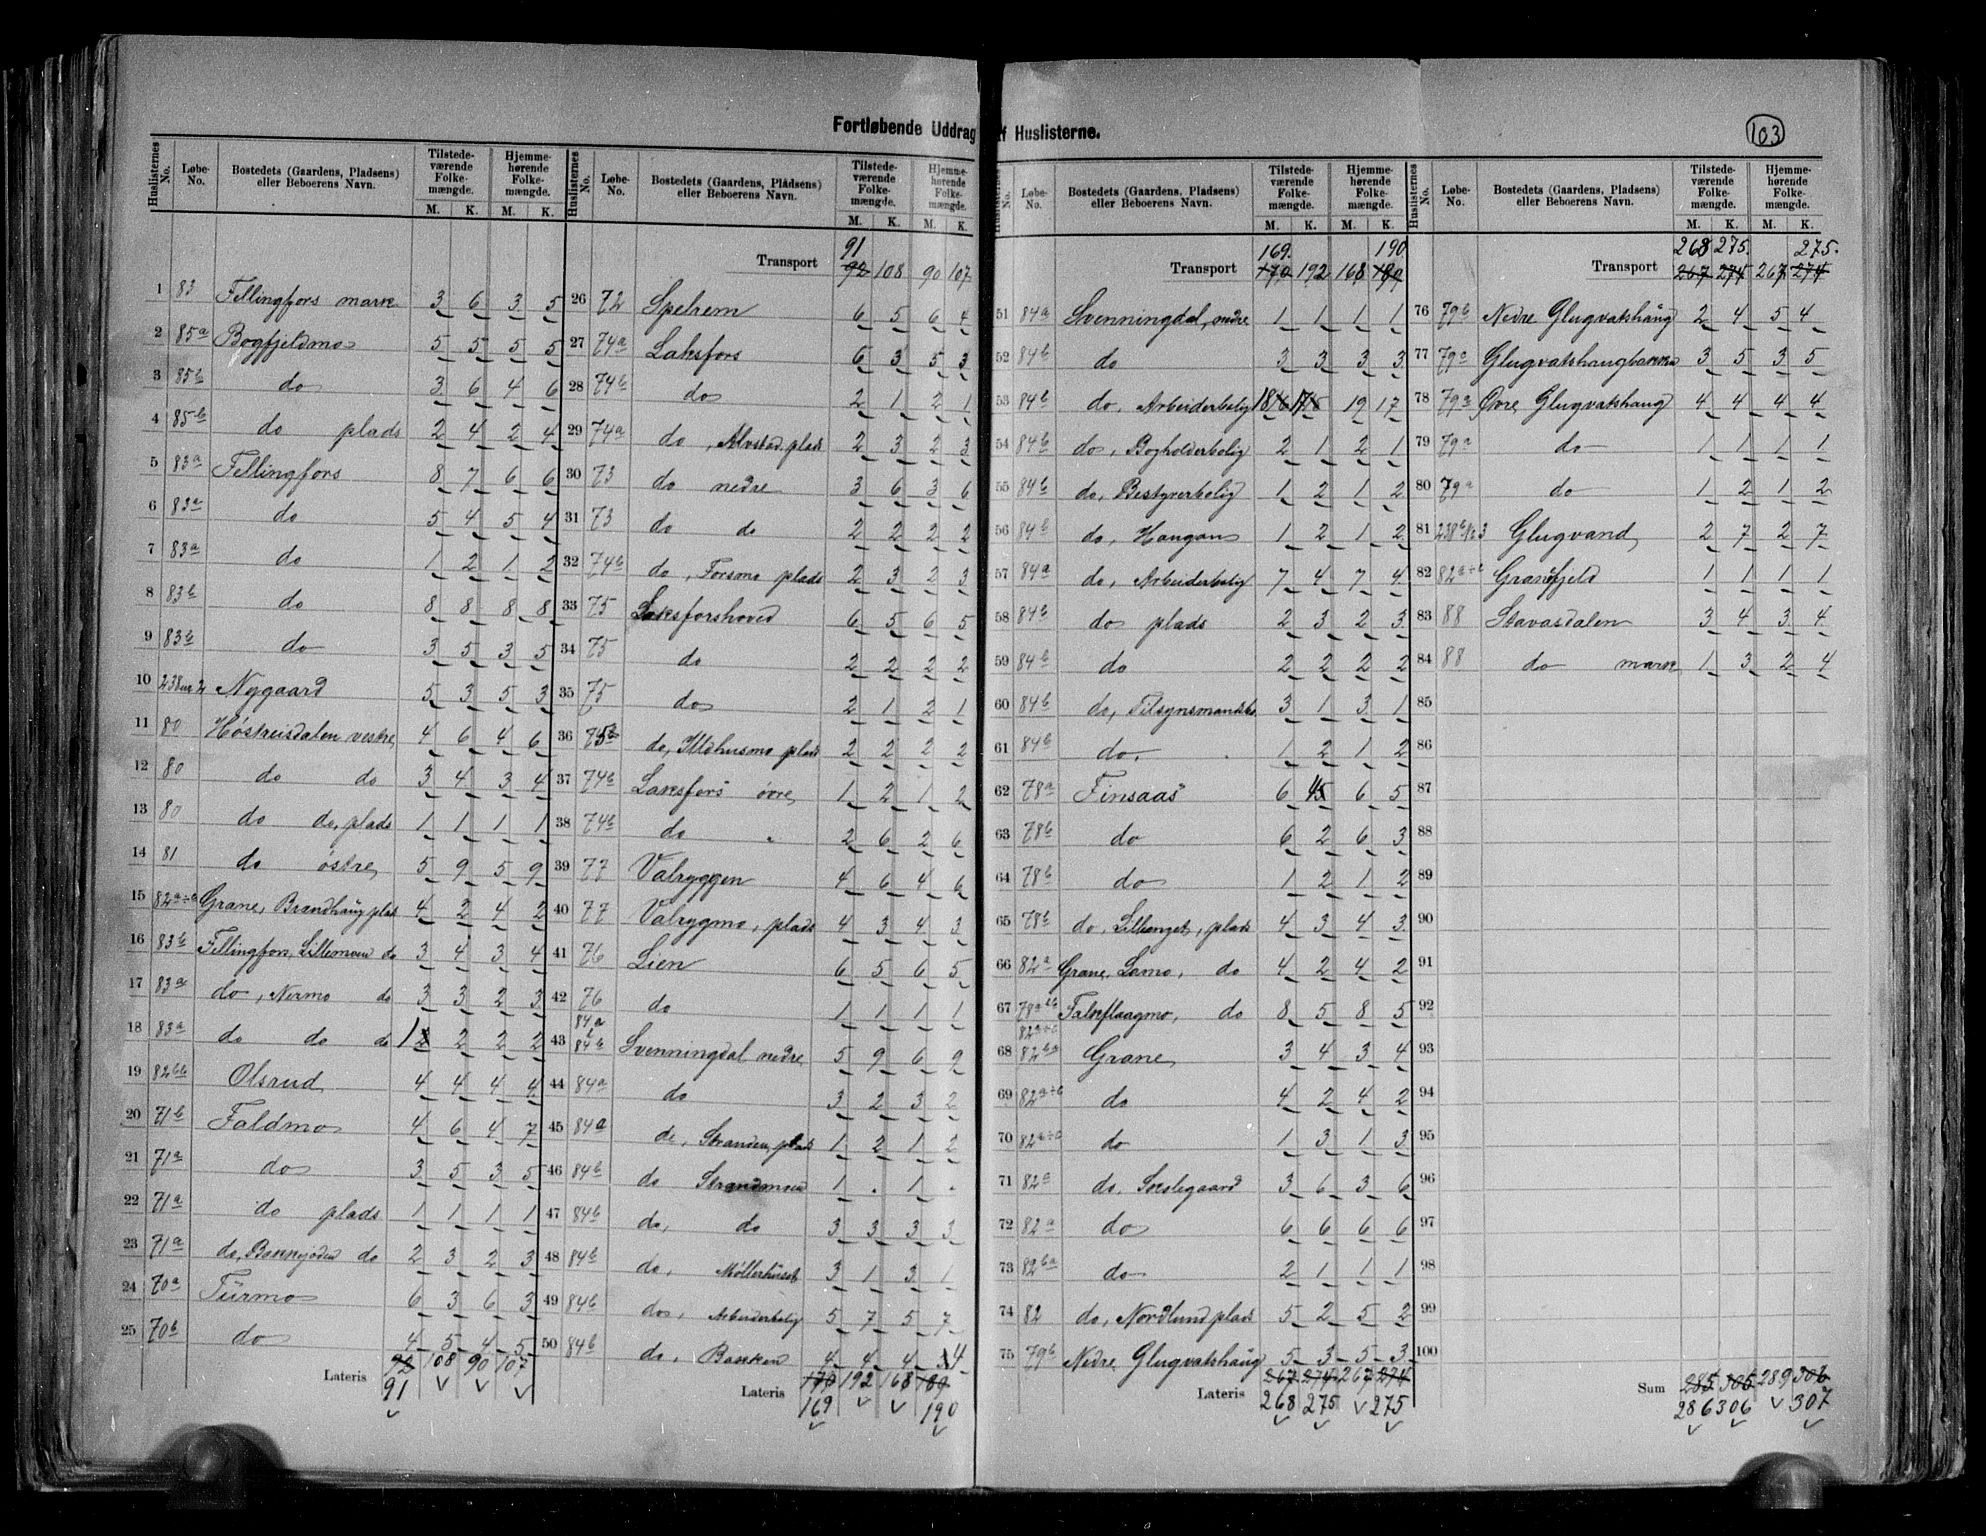 Fortløbende Uddrag af Huslisterne.
103
Huslisternes No. Løbe-No. Bostedets (Gaardens, Pladsens) eller Beboerens Navn. Tilstedeværende Folkemængde. M. K. Hjemmehørende Folkemængde. M. K.
1 83 Fellingfors mark 3 6 3 5
2 85a Bogfjeldmo 5 5 5 5
3 85b do 3 6 4 6
4 85b do plads 2 4 2 4
5 83a Fellingfors 8 7 6 6
6 83a do 5 4 5 4
7 83a do 1 2 1 2
8 83b do 8 8 8 8
9 83b do 3 5 3 5
10 Nygaard 5 3 5 3
11 80 Høstreisdalen vestre 4 6 4 6
12 80 do do 3 4 3 4
13 80 do do, plads 1 1 1 1
14 81 do østre 5 9 5 9
15 82a÷c Grane, Brandhaug plads 4 2 4 2
16 83b Fellingfors, Lillemoen do 3 4 3 4
17 83a do, Nermo do 3 3 2 3
18 83a do do do 1 2 2 2
19 82bb Olsrud 4 4 4 4
20 71b Faldmo 4 6 4 7
21 71a do 3 5 3 5
22 71a do plads 1 1 1 1
23 71a do, do 2 3 2 3
24 70a Turmo 6 3 6 3
25 70b do 4 5 4 5
Lateris 92 108 90 107
91
Huslisternes No. Løbe-No. Bostedets (Gaardens, Pladsens) eller Beboerens Navn. Tilstedeværende Folkemængde. M. K. Hjemmehørende Folkemængde. M. K.
91
Transport 92 108 90 107
26 72 Spelrem 6 5 6 4
27 74a Laksfors 6 3 5 3
28 74b do 2 1 2 1
29 74a do, Alvstad plads 2 3 2 3
30 73 do nedre 3 6 3 6
31 73 do do 2 2 2 2
32 74b do, Forsmo plads 2 3 2 3
33 75 Laksforshoved 6 5 6 5
34 75 do 2 2 2 2
35 75 do 2 1 2 1
36 75b do, Ildhusmo plads 2 2 2 2
37 74b Laksfors øvre 1 2 1 2
38 74b do " 2 6 2 6
39 77 Valryggen 4 6 4 6
40 77 Valrygmo, plads 4 3 4 3
41 76 Lien 6 5 6 5
42 76 do 1 1 1 1
43 84a 84b Svenningdal nedre 5 9 6 9
44 84a do 3 2 3 2
45 84a do, Stranden, plads 1 2 1 2
46 84b do Strandmoen 1 . 1 .
47 84b do, do 3 3 3 3
48 84b do, Møllerhuset 3 1 3 1
49 84b do, Arbeiderbolig 5 7 5 7
50 84b do, Bakken 4 4 4 4
Lateris 170 192 168 189
169 190
Huslisternes No. Løbe-No. Bostedets (Gaardens, Pladsens) eller Beboerens Navn. Tilstedeværende Folkemængde. M. K. Hjemmehørende Folkemængde. M. K.
169. 190
Transport 170 192 168 189
51 84a Svenningdal, nedre 1 1 1 1
52 84b do 2 3 3 3
53 84b do, Arbeiderbolig 19 17
54 84b do, Bogholderbolig 2 1 2 1
55 84b do, Bestyrerbolig 1 2 1 2
56 84b do, Haugan 1 2 1 2
57 84a do, Arbeiderbolig 7 4 7 4
58 84b do plads 2 3 2 3
59 84b do 2 2 2 2
60 84b do, Tilsynsmandsbo 3 1 3 1
61 84b do. 1 2 1 2
62 78a Finsaas 6 5 6 5
63 78b do 6 2 6 3
64 78b do 1 2 1 2
65 78b do, Lillenget, plads 4 3 4 3
66 82a Grane, Lamo, do 4 2 4 2
67 Falkflaagmo, do 8 5 8 5
68 82ba Grane 3 4 3 4
69 82a÷c do 4 2 4 2
70 82a÷c do 1 3 1 3
71 82a do, Soslegaard 3 6 3 6
72 82a do 6 6 6 6
73 82ba do 2 1 1 1
74 82 do, Nordlund plads 5 2 5 2
75 79b Nedre Glugvatshaug 5 3 5 3
Lateris 267 274 267 274
268 275 275
Huslisternes No. Løbe-No. Bostedets (Gaardens, Pladsens) eller Beboerens Navn. Tilstedeværende Folkemængde. M. K. Hjemmehørende Folkemængde. M. K.
268 275. 275.
Transport 267 274 267 274
76 79b Nedre Glugvatshaug 2 4 5 4
77 79a Glugvatshaugbakken 3 5 3 5
78 79a Øvre Glugvatshaug 4 4 4 4
79 79a do 1 1 1 1
80 79a do 1 2 1 2
81 Glugvand 2 7 2 7
82 82a÷c Granefjeld 1 1 1 1
83 88 Stavasdalen 3 4 3 4
84 88 do mark 1 3 2 4
85
86
87
88
89
90
91
92
93
94
95
96
97
98
99
100
Sum 285 305 289 306
286 306 307